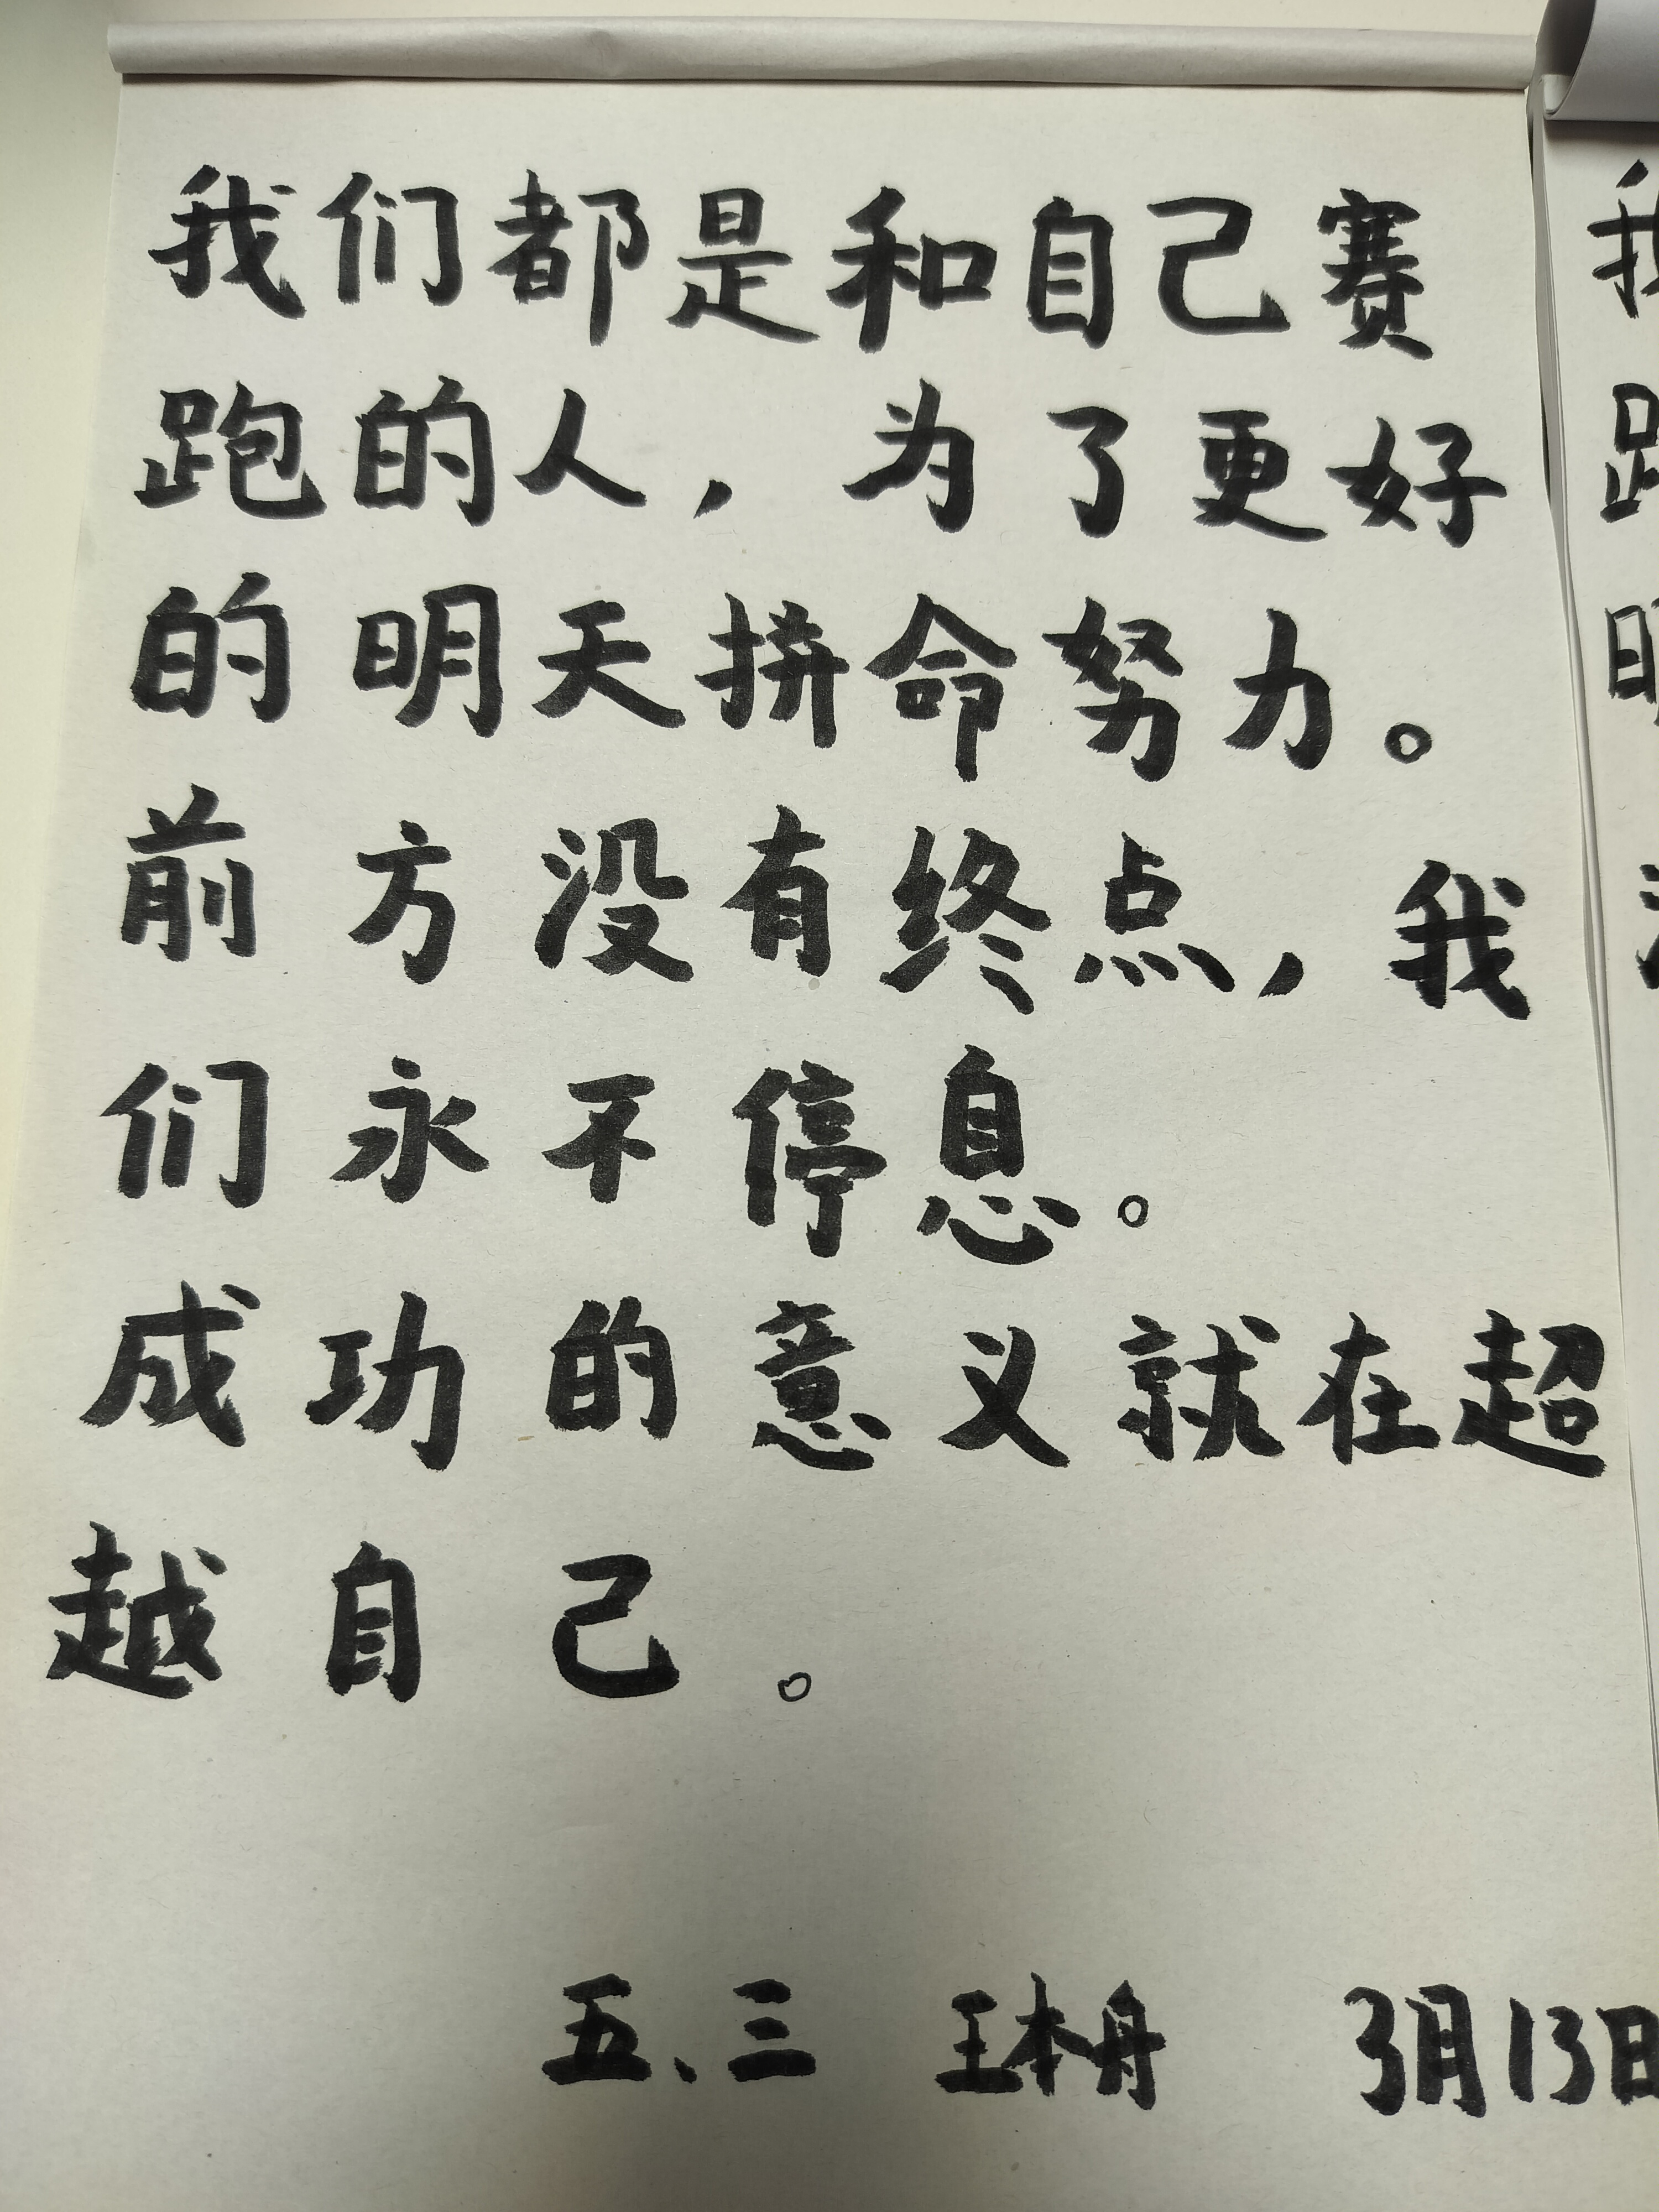 我们都是和自己赛
跑的人，为了更好
的明天拼命努力。
前方没有终点，我
们永不停息。
成功的意义就在超
越自己。
五、三 王本丹 3月13日